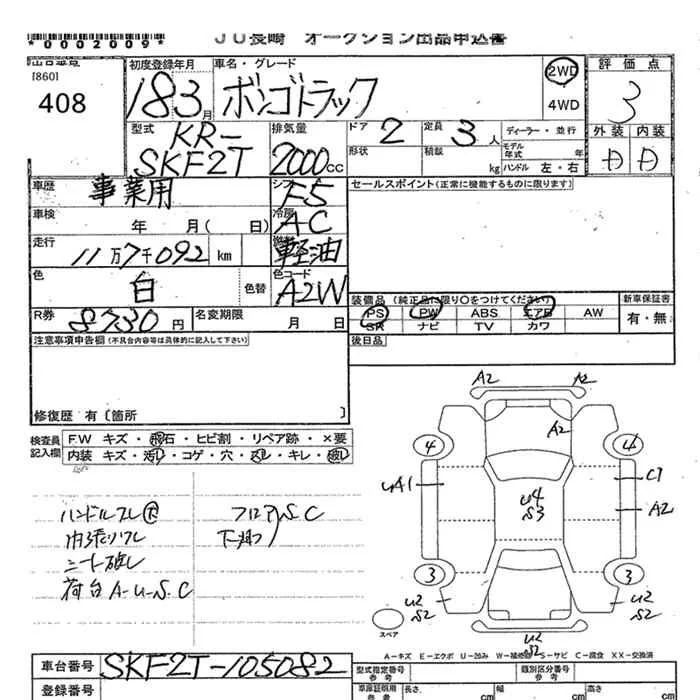 *0002009*
JU長崎 オークション出品申込書
[860]
408
初度登録年月
18 3月
車名・グレード
ボンゴトラック
2WD
4WD
評価点
3
外装 内装
D D
型式
KR-
SKF2T
排気量
2000cc
ドア 2
定員 3人
形状
積載 kg
ディーラー・並行
モデル年式 年
ハンドル 左・右
車歴
事業用
シフト
F5
セールスポイント(正常に機能するものに限ります)
車検 年 月( 日)
冷房
AC
走行 11万7千092 km
燃料
軽油
色 白 色替
色コード
A2W
R券 8730円
名変期限 月 日
装備品 (純正品に限り○をつけてください)
PS PW ABS エアB AW
SR ナビ TV カワ
新車保証書
有・無
後日品
注意事項申告欄(不具合内容等は具体的に記入して下さい)
修復歴 有〔箇所 〕
検査員
記入欄
FW キズ・飛石・ヒビ割・リペア跡・×要
内装 キズ・汚れ・コゲ・穴・ズレ・キレ・破れ
ハンドルスレ
シート破れ
荷台A-U-S.C
フロアS.C
A2 A2
A2
4 4
UA1
C1
A2
U4
S3
3 3
U2
S2
U2
S2
U2
S2
スペア
A-キズ E-エクボ U-凹み W-補修跡 S-サビ C-腐食 XX-交換済
車台番号 SKF2T-105082
登録番号
型式指定番号
参考
類別区分番号
参考
車庫証明用
参考
長さ cm
幅 cm
高さ cm